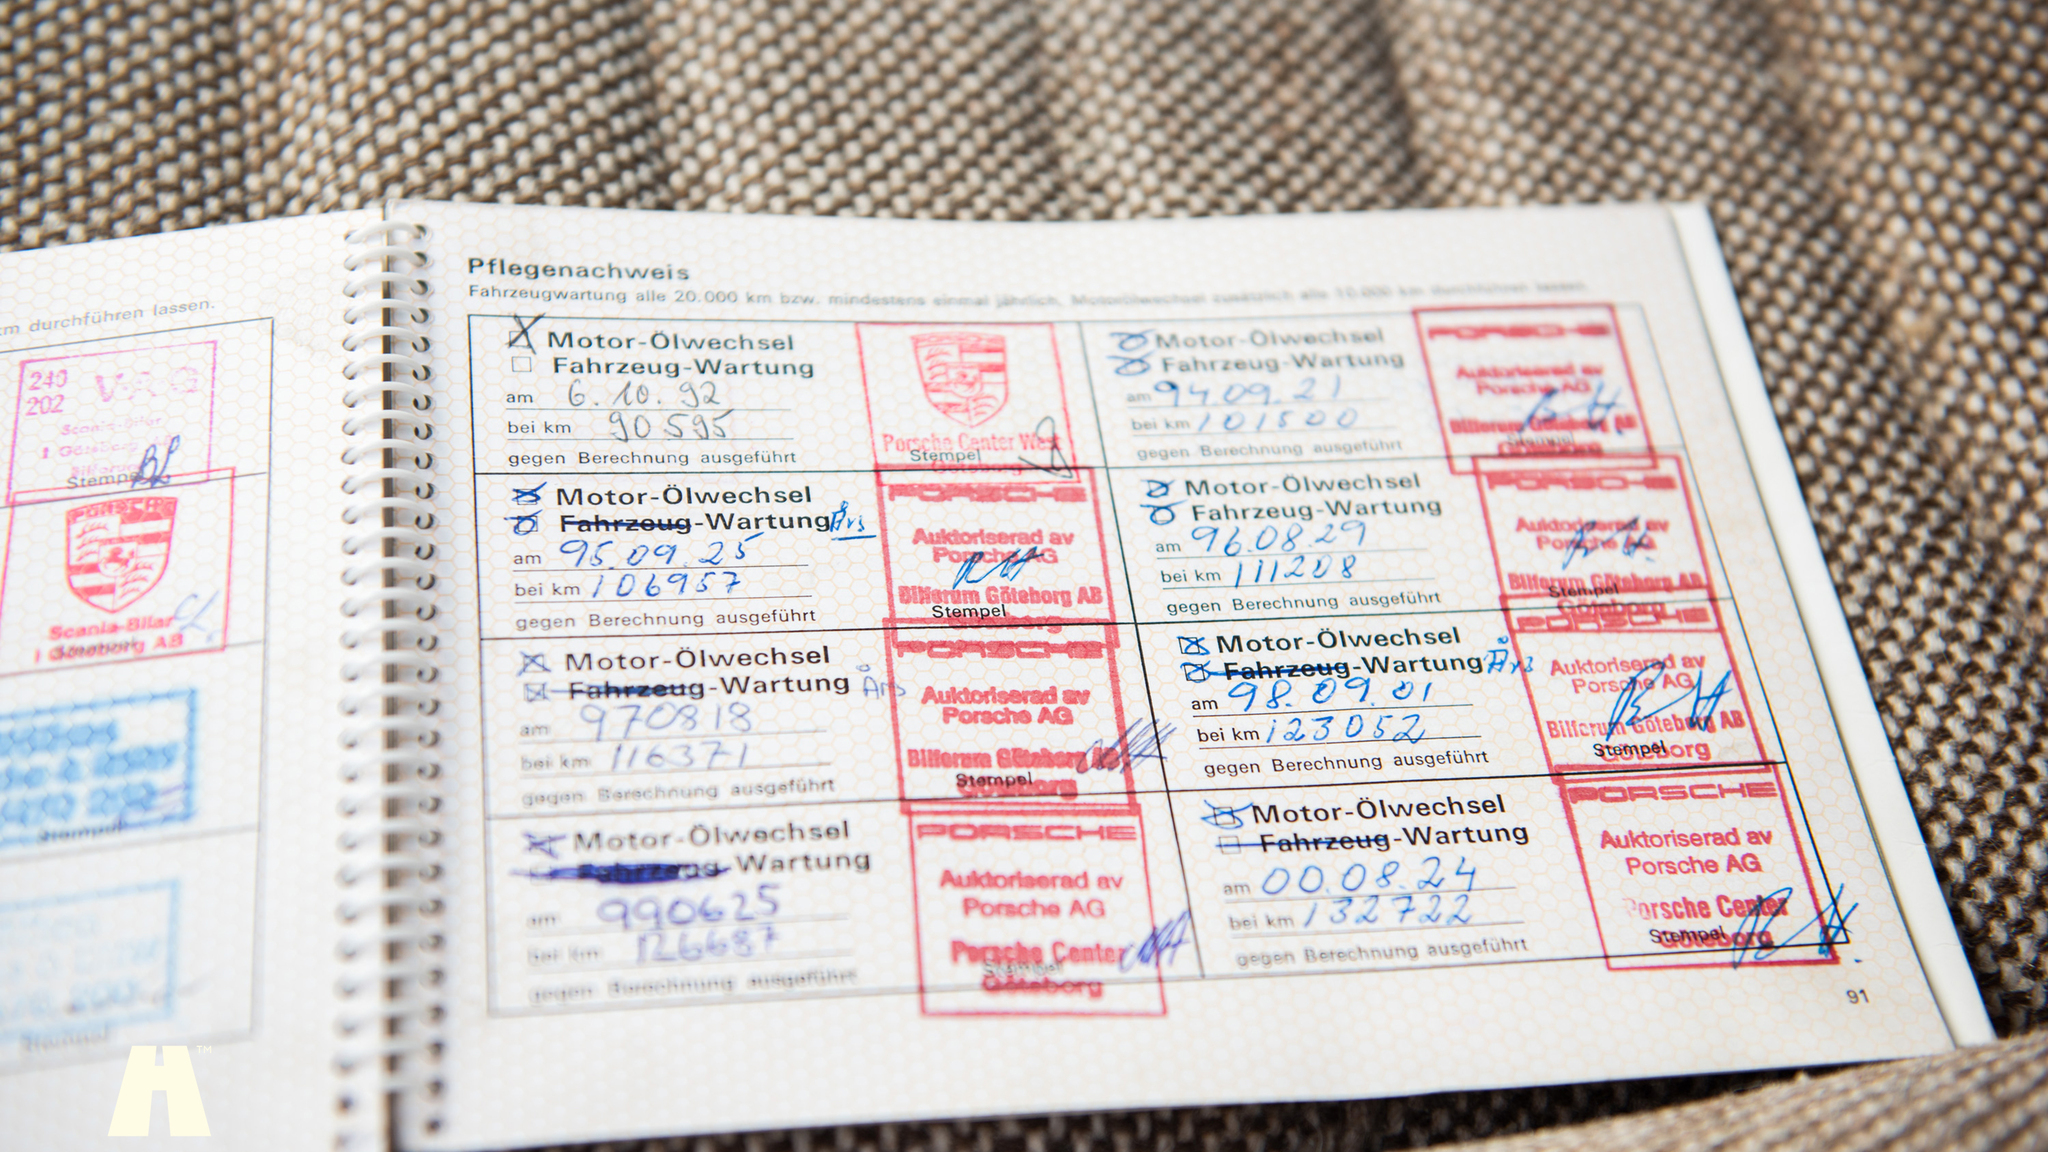 km durchführen lassen.
240
202
V·A·G
Scania-Bilar
i Göteborg AB
Bilforum
Stempel
PORSCHE
Scania-Bilar
i Göteborg AB
Stempel
Stempel
Pflegenachweis
Fahrzeugwartung alle 20.000 km bzw. mindestens einmal jährlich, Motorölwechsel zusätzlich alle 10.000 km durchführen lassen.
Motor-Ölwechsel
Fahrzeug-Wartung
am 6.10.92
bei km 90595
gegen Berechnung ausgeführt
Porsche Center West
Göteborg
Stempel
Motor-Ölwechsel
Fahrzeug-Wartung
am 94.09.21
bei km 101500
gegen Berechnung ausgeführt
PORSCHE
Auktoriserad av
Porsche AG
Bilforum Göteborg AB
Göteborg
Stempel
Motor-Ölwechsel
Fahrzeug-Wartung Års
am 95.09.25
bei km 106957
gegen Berechnung ausgeführt
PORSCHE
Auktoriserad av
Porsche AG
Bilforum Göteborg AB
Göteborg
Stempel
Motor-Ölwechsel
Fahrzeug-Wartung
am 96.08.29
bei km 111208
gegen Berechnung ausgeführt
PORSCHE
Auktoriserad av
Porsche AG
Bilforum Göteborg AB
Göteborg
Stempel
Motor-Ölwechsel
Fahrzeug-Wartung Års
am 970818
bei km 116371
gegen Berechnung ausgeführt
PORSCHE
Auktoriserad av
Porsche AG
Bilforum Göteborg AB
Göteborg
Stempel
Motor-Ölwechsel
Fahrzeug-Wartung Års
am 98.09.01
bei km 123052
gegen Berechnung ausgeführt
PORSCHE
Auktoriserad av
Porsche AG
Bilforum Göteborg AB
Göteborg
Stempel
Motor-Ölwechsel
Fahrzeug-Wartung
am 990625
bei km 126687
gegen Berechnung ausgeführt
PORSCHE
Auktoriserad av
Porsche AG
Porsche Center
Göteborg
Stempel
Motor-Ölwechsel
Fahrzeug-Wartung
am 00.08.24
bei km 132722
gegen Berechnung ausgeführt
PORSCHE
Auktoriserad av
Porsche AG
Porsche Center
Göteborg
Stempel
91
H™